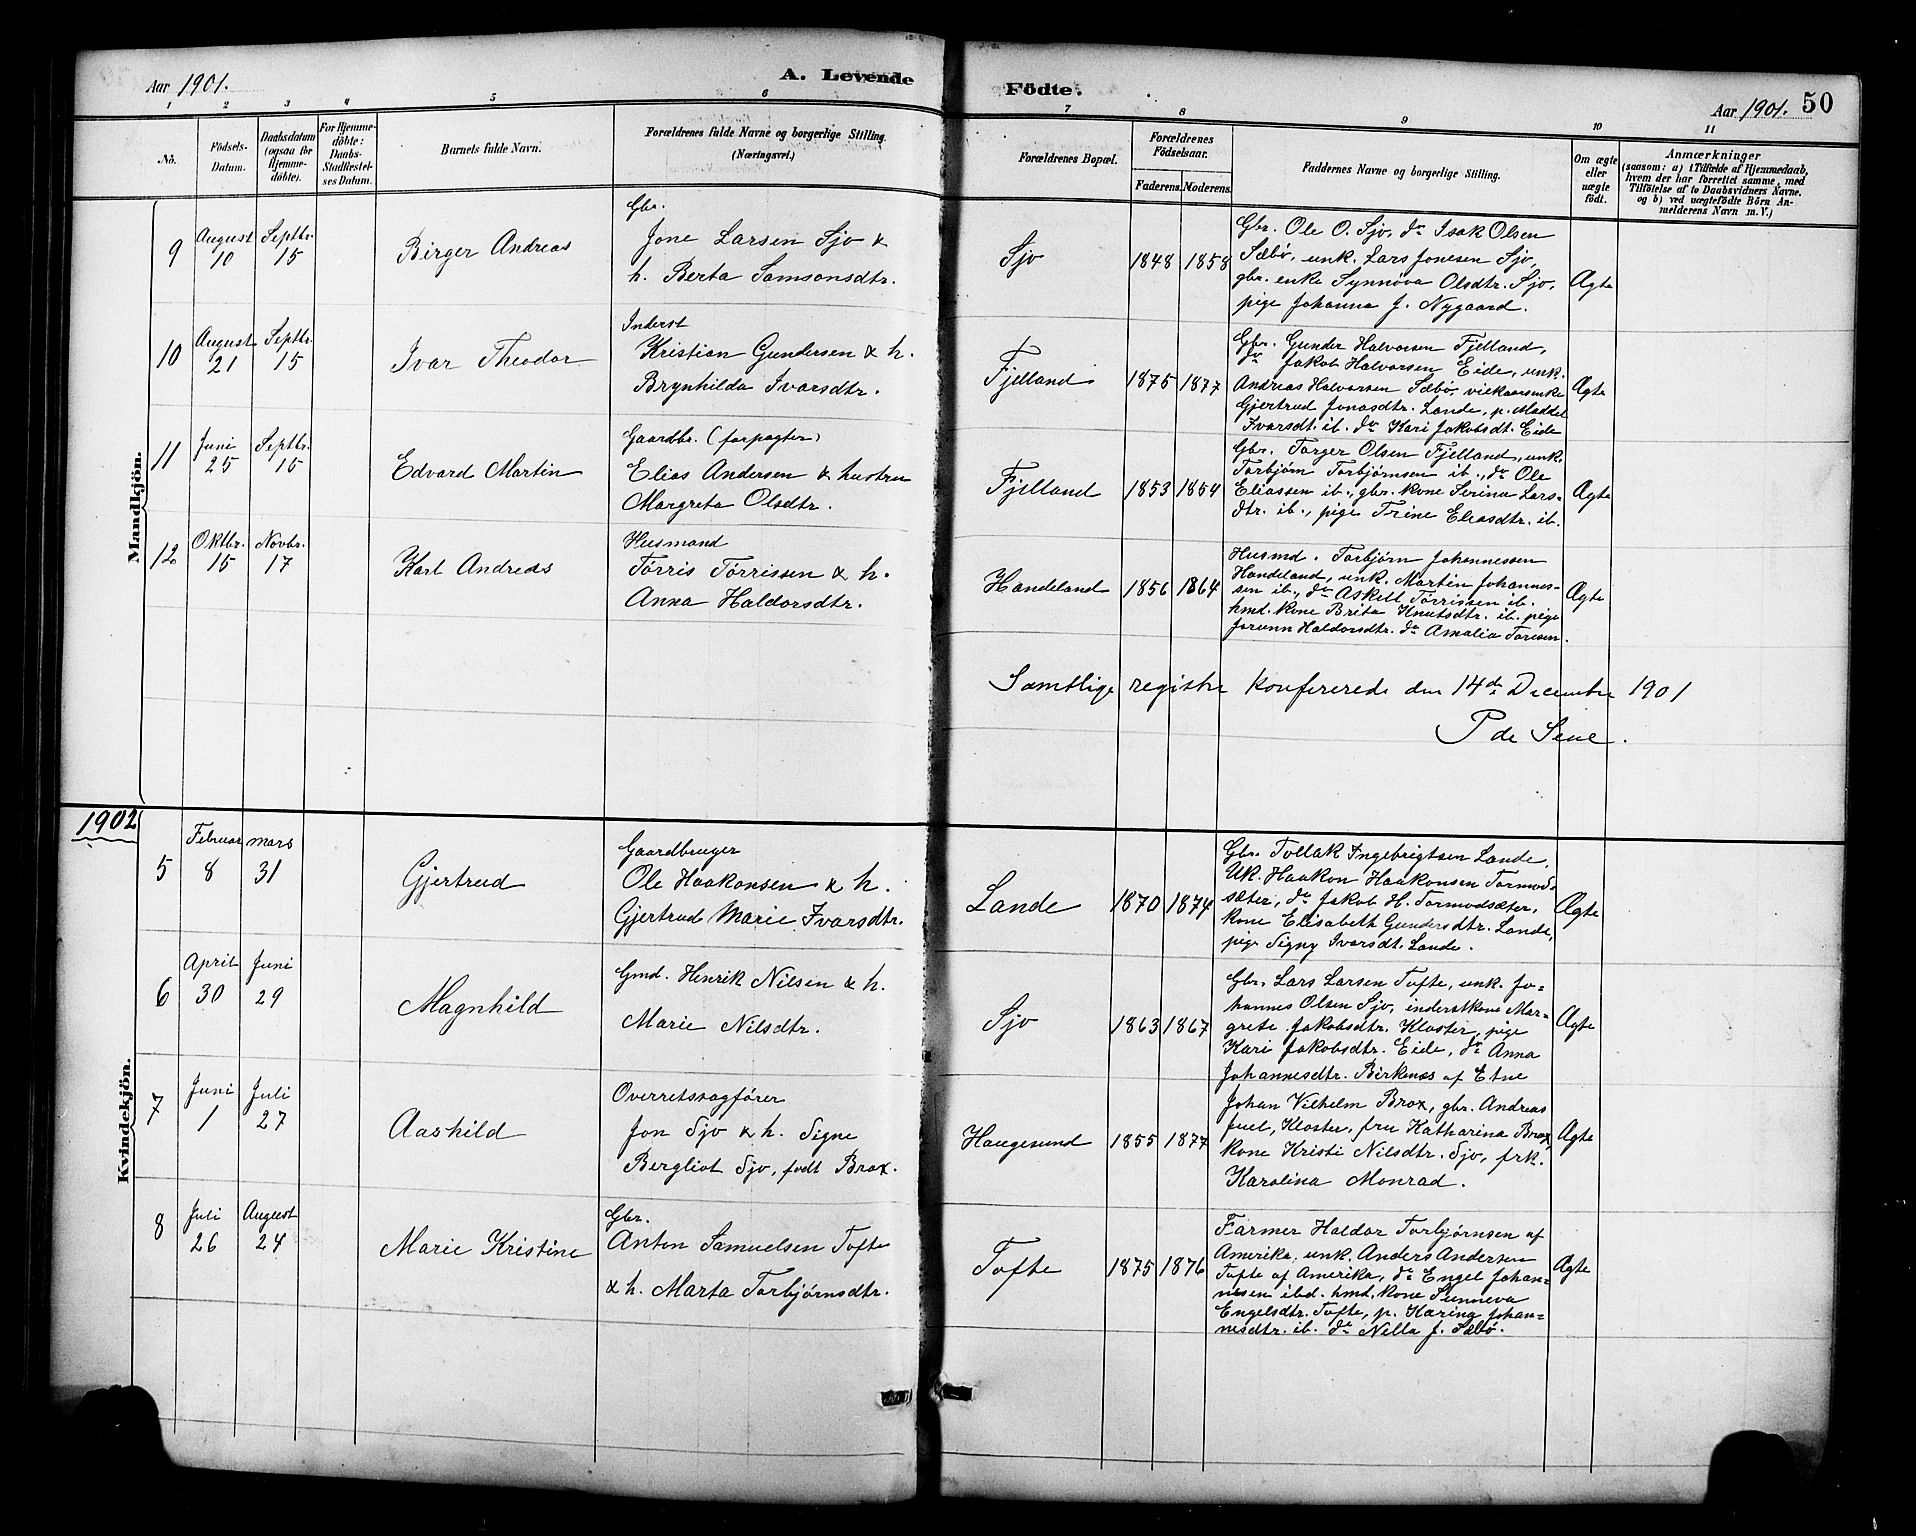 Aar 1901.
A. Levende
Födte.
Aar 1901. 50
1 2 3 4 5 6 7 8 9 10 11
No.
Födsels-
Datum.
Daabsdatum
(ogsaa for
Hjemme-
döbte).
For Hjemme-
döbte:
Daabs-
Stadfæstel-
ses Datum.
Barnets fulde Navn.
Forældrenes fulde Navne og borgerlige Stilling.
(Næringsvei.)
Forældrenes Bopæl.
Forældrenes
Födselsaar.
Faderens. Moderens.
Faddernes Navne og borgerlige Stilling.
Om ægte
eller
uægte
födt.
Anmærkninger
(saasom: a) i Tilfælde af Hjemmedaab,
hvem der har forrettet samme, med
Tilföielse af to Daabsvidners Navne.
og b) ved uægtefödte Börn An-
melderens Navn m. V.)
Mandkjön.
9
August
10
Septbr.
15
Birger Andreas
Gbr.
Jone Larsen Sjo &
h. Berta Samsonsdtr.
Sjo
1848 1858
Gbr. Ole O. Sjo, do Isak Olsen
Sæbø, unk. Lars Jonesen Sjo,
gbr. enke Synnøva Olsdtr. Sjo,
pige Johanna J. Nygaard.
Ægte
10
August
21
Septbr.
15
Ivar Theodor
Inderst
Kristian Gundersen & h.
Brynhilda Ivarsdtr.
Fjelland
1875 1877
Gbr. Gunder Halvorsen Fjelland,
do Jakob Halvorsen Eide, unk.
Andreas Halvorsen Sæbø, vilkaarsenke
Gjertrud Jonasdtr. Lande, p. Maddel
Ivarsdt. ib. do Kari Jakobsdt. Eide
Ægte
11
Juni
25
Septbr.
15
Edvard Martin
Gaardbr. (forpagter)
Elias Andersen & hustru
Margreta Olsdtr.
Fjelland
1853 1854
Gbr. Torger Olsen Fjelland, unk.
Torbjørn Torbjørnsen ib., do Ole
Eliassen ib., gbr. kone Serina Lars-
dtr. ib., pige Trine Eliasdtr. ib.
Ægte
12
Oktbr.
15
Novbr.
17
Karl Andreas
Husmand
Tørris Tørrissen & h.
Anna Haldorsdtr.
Handeland
1856 1864
Husmd. Torbjørn Johannessen
Handeland, unk. Martin Johannes-
sen ib., do Askell Tørrissen ib.
hmd. kone Brita Knutsdtr. ib. pige
Jorunn Haldorsdtr. do Amalia Toresen.
Ægte
Samtlige registre konfererede den 14de December 1901
P de Seue.
1902
Kvindekjön.
5
Februar
8
mars
31
Gjertrud
Gaardbruger
Ole Haakonsen & h.
Gjertrud Marie Ivarsdtr.
Lande
1870 1874
Gbr. Tollak Ingebrigtsen Lande.
Uk. Haakon Haakonsen Tormod-
sæter, do Jakob H. Tormodsæter,
kone Elisabeth Gundersdtr. Lande,
pige Signy Ivarsdt. Lande.
Ægte
6
April
30
Juni
29
Magnhild
Gmd. Henrik Nilsen & h.
Marie Nilsdtr.
Sjo
1863 1867
Gbr. Lars Larsen Tofte, unk. Jo-
hannes Olsen Sjo, inderstkone Mar-
grete Jakobsdtr. Kloster, pige
Kari Jakobsdtr. Eide, do Anna
Johannesdtr. Birkenes af Etne
Ægte
7
Juni
1
Juli
27
Aashild
Overretssagfører
Jon Sjo & h. Signe
Bergliot Sjo, født Brox.
Haugesund
1855 1877
Johan Vilhelm Brox, gbr. Andreas
Juel, Kloster, fru Katharina Brox,
kone Kristi Nilsdtr. Sjo, frk.
Karolina Monrad.
Ægte
8
Juli
26
August
24
Marie Kristine
Gbr.
Anton Samuelsen Tofte
& h. Marta Torbjørnsdtr.
Tofte
1875 1876
Farmer Haldor Torbjørnsen af
Amerika, unk. Anders Andersen
Tofte af Amerika, do Engel Johan-
nesen ibd. hmd. kone Sunneva
Engelsdtr. Tofte, p. Karina Johan-
nesdtr. ib. do Nilla J. Sæbø.
Ægte